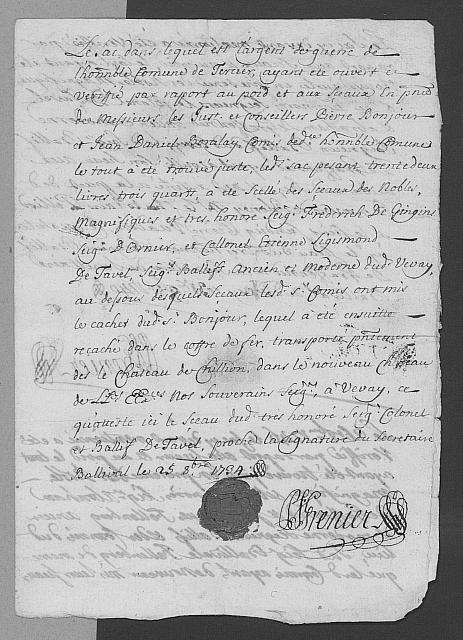 Le sac dans lequel est l'argent de guerre de
l'honnble Comune de Tercier, ayant été ouvert et
verifié par rapport au poid et aux sceaux En pnce
de Messieurs les Just. et conseillers Pierre Bonjour
et Jean Daniel Comis de d.te honnble Comune
le tout a été trouvé juste, led. sac pesant trente deux
livres trois quarts, a été scellé des Sceaux des Nobles,
Magnifiques et tres honoré Seig.rs Frederich De Gingins
Seig.r D'Ornier, et Collonel Etienne Sigismond
De Tavel Seig.rs Ballifs Ancien et Moderne dud. Vevay,
au dessous desquels sceaux lesd. S.rs Comis ont mis
le cachet dud. S.r Bonjour, lequel a été ensuitte
recaché dans le coffre de fer, transporté pntement
dès le Chateau de Chillion, dans le nouveau Chateau
de L.L. EE.ces Nos Souverains Seig.rs, a Vevay, ce
qu'atteste ici le Sceau dud. tres honoré Seig.r Colonel
et Ballif De Tavel, proche la signature du Secretaire
Ballival le 25 8.bre 1734
Grenier